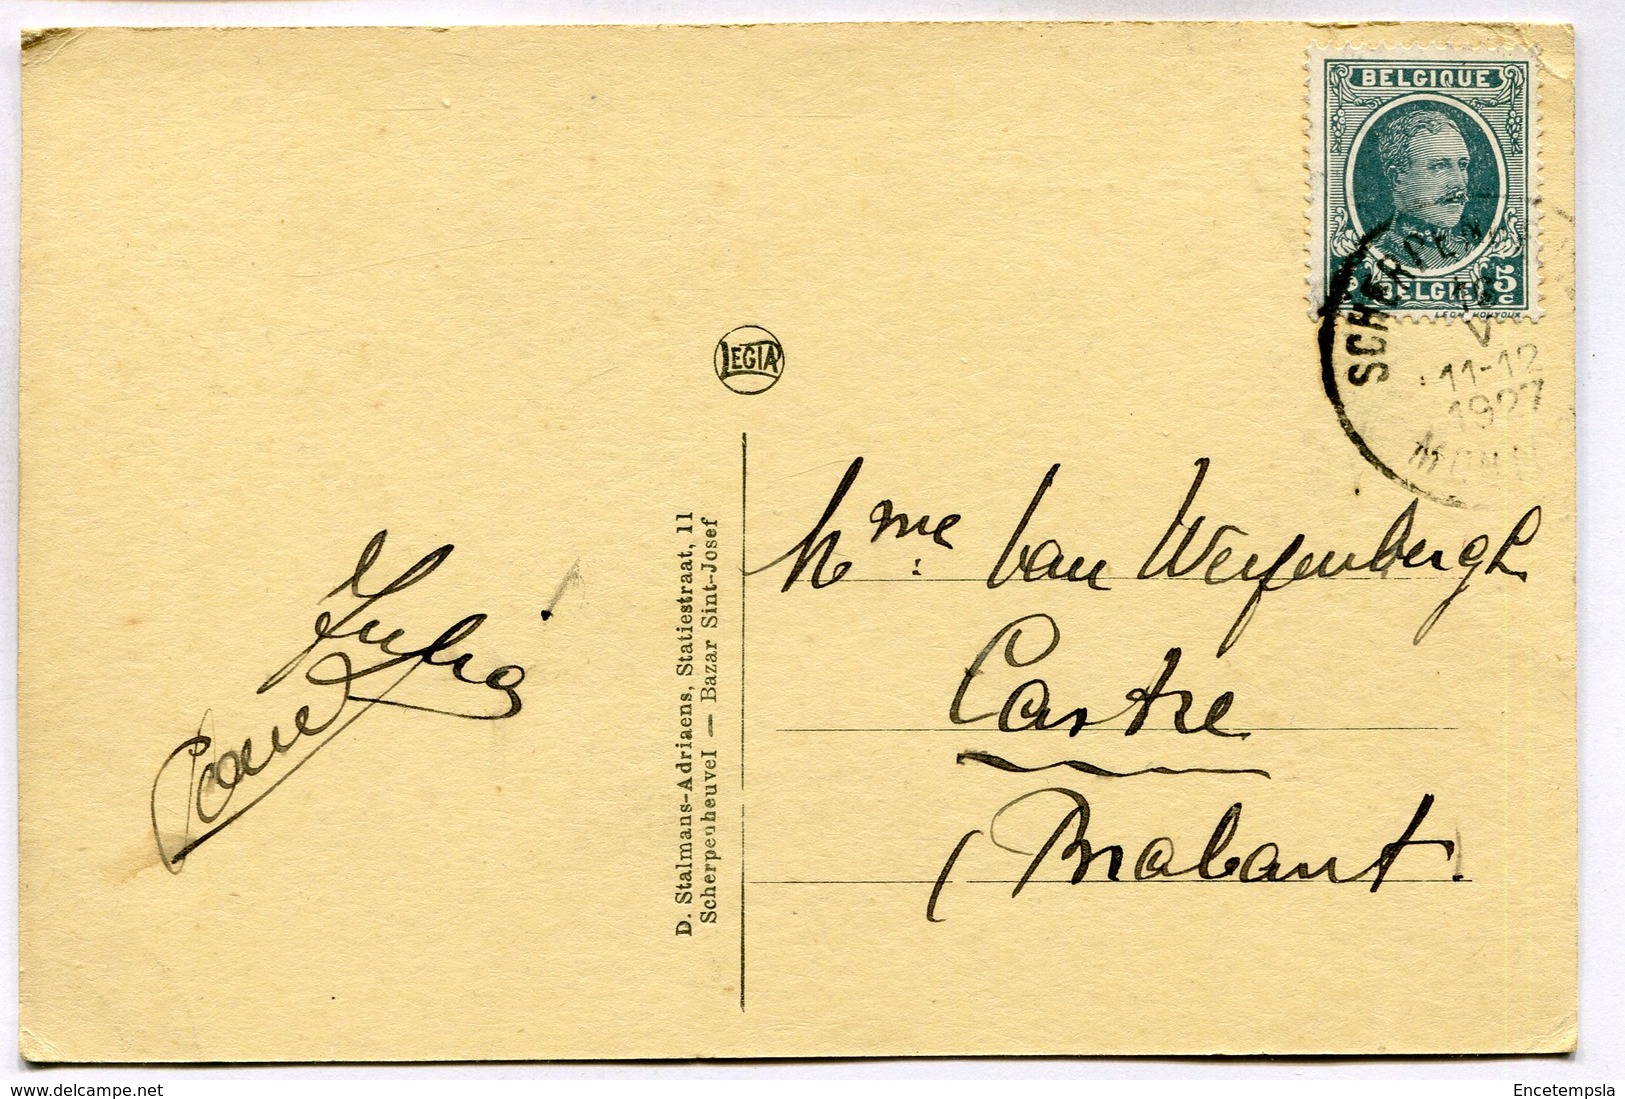 BELGIQUE
BELGIË 5 c
LEON HOUYOUX
11-12
1927
LEGIA
D. Stalmans-Adriaens, Statiestraat, 11
Scherpenheuvel — Bazar Sint-Josef
Julia
Mme: Van Weyenbergh
Castre
(Brabant.
www.delcampe.net
Encetempsla